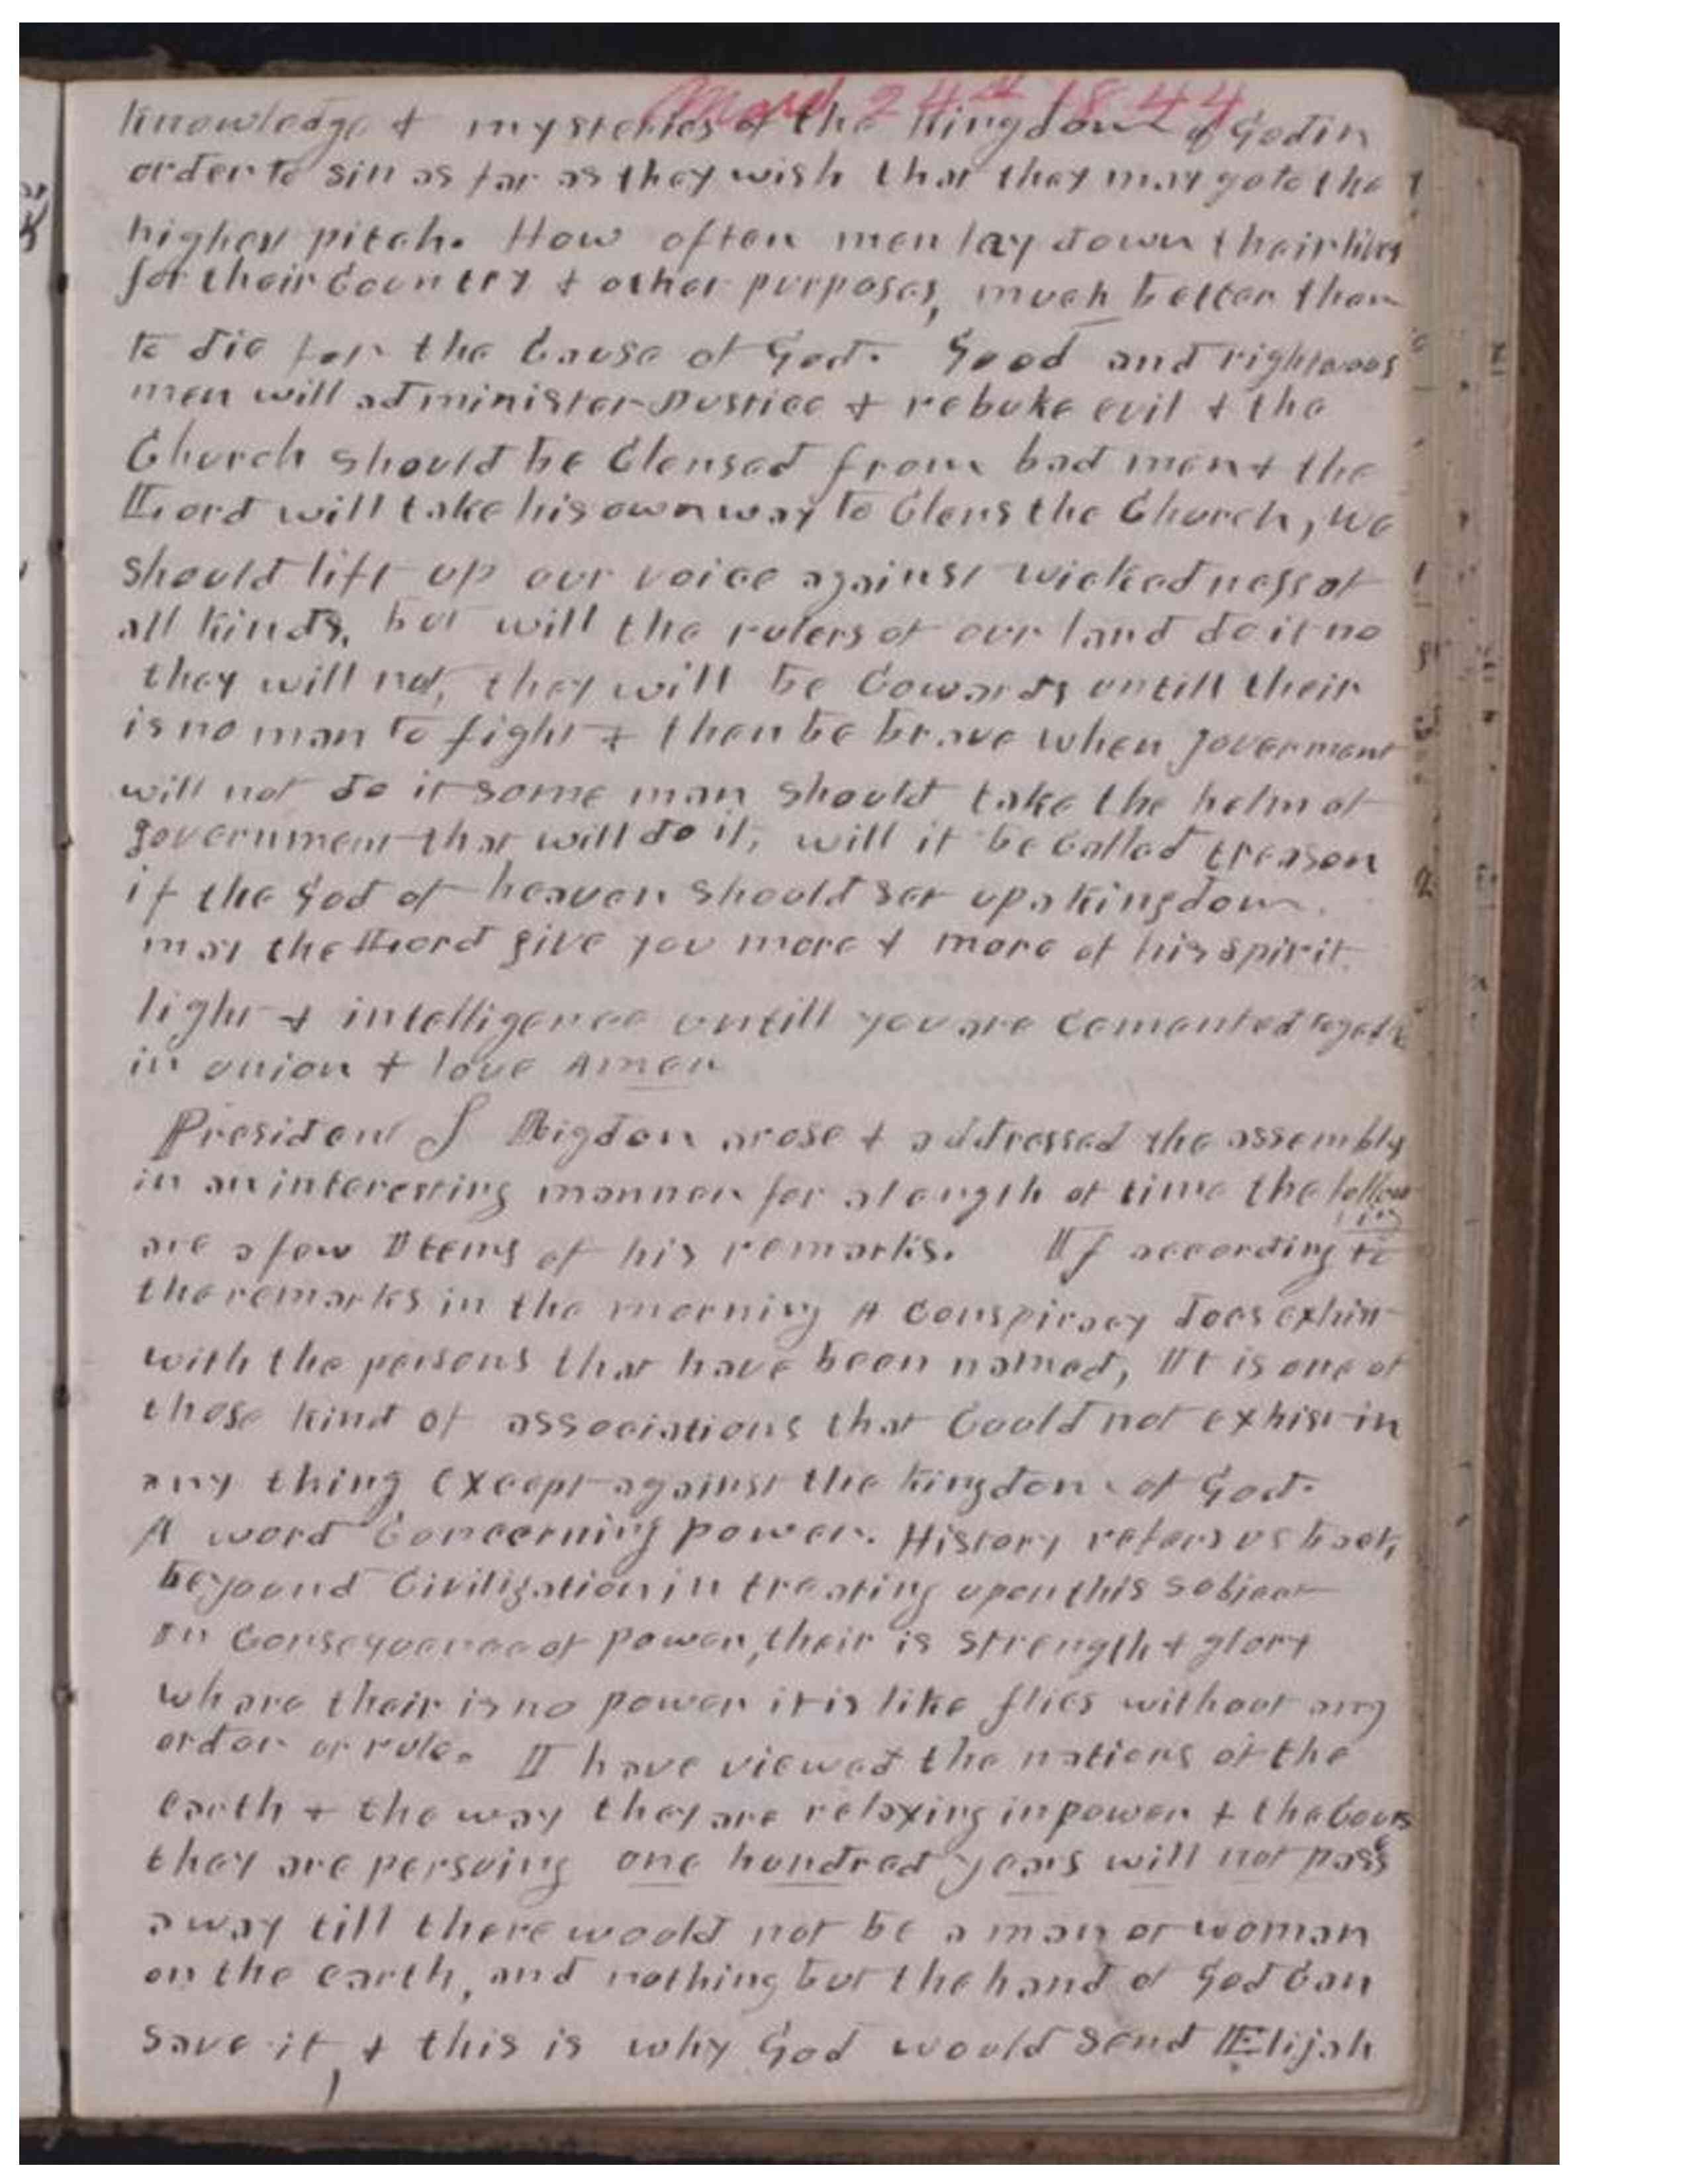 March 24th 1844
knowledge & mysteries of the Kingdom of God in
order to sin as far as they wish that they may go to the
highest pitch. How often men lay down their lives
for their Country & other purposes, much better than
to die for the Cause of God. Good and righteous
men will administer Justice & rebuke evil & the
Church should be Clensed from bad men & the
Lord will take his own way to Clens the Church, we
should lift up our voice against wickedness of
all kinds, but will the rulers of our land do it no
they will not, they will be Cowards untill their
is no man to fight & then be brave when goverment
will not do it some man should take the helm of
government that will do it, will it be Called treason
if the God of heaven should set up a kingdom.
may the Lord give you more & more of his spirit
light & intelligence untill you are Cemented together
in union & love Amen
President S Rigdon arose & addressed the assembly
in an interesting manner for a length of time the follow
ing
are a few Items of his remarks. If according to
the remarks in the morning A Conspiracy does exhist
with the persons that have been named, It is one of
those kind of associations that Could not exhist in
any thing except against the kingdom of God.
A word Concerning power. History refers us back,
beyound Civilization in treating upon this subject
In Consequence of power, their is strength & glory
whare their is no power it is like flies without any
order or rule. I have viewed the nations of the
earth & the way they are relaxing in power & the Cours
e
they are persuing one hundred years will not pass
away till there would not be a man or woman
on the earth, and nothing but the hand of God Can
save it, & this is why God would send Elijah